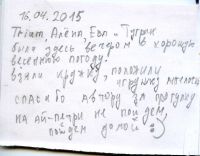 16.04.2015
Timur, Алёна, Ева и Тигран
были здесь вечером в хорошую
весеннюю погоду.
Взяли кружку, положили
игрушку мыльн
Спасибо автору за прогулку
на Ай-Петри не пойдем,
пойдем домой :)